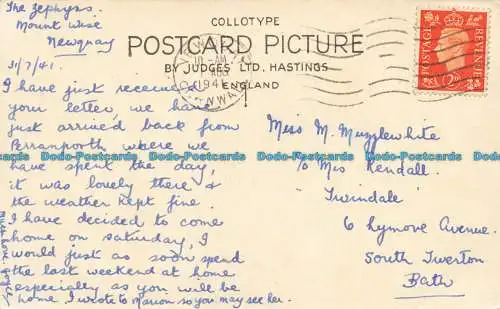 The Zephyrs
Mount Wise
Newquay
31/7/41.
I have just received
your letter, we have
just arrived back from
Perranporth where we
have spent the day,
it was lovely there &
the weather kept fine.
I have decided to come
home on Saturday, I
would just as soon spend
the last weekend at home
especially as you will be
home. I wrote to Marion so you may see her.
Much love
COLLOTYPE
POSTCARD PICTURE
BY JUDGES LTD, HASTINGS
ENGLAND
10 - AM
AUG
1941
POSTAGE
REVENUE
Miss M. Mugglewhite
c/o Mrs Kendall.
"Twindale"
6 Lymore Avenue.
South Twerton
Bath
Dodo-Postcards Dodo-Postcards Dodo-Postcards Dodo-Postcards